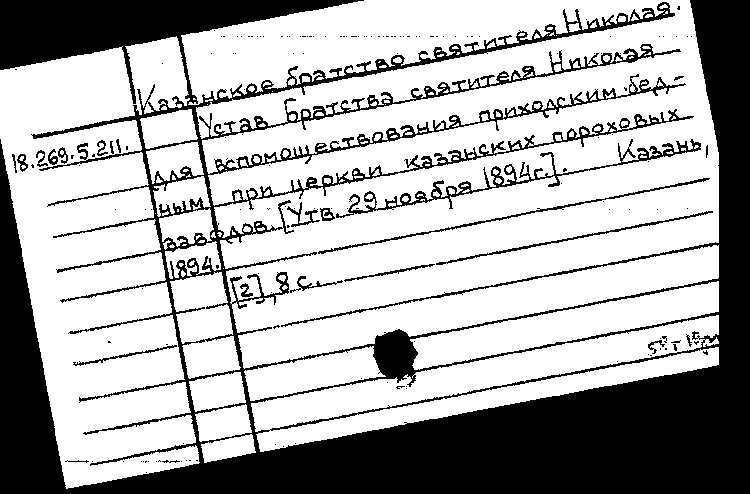 Казанское братство святителя Николая.
Устав Братства святителя Николая
18.269.5.211.
для вспомоществования приходским бед-
ным при церкви казанских пороховых
заводов. [Утв. 29 ноября 1894г.]. Казань,
1894.
[2], 8 с.